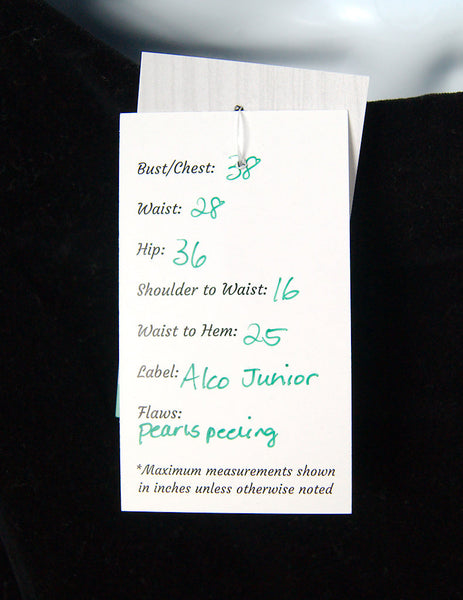 Bust/Chest: 38
Waist: 28
Hip: 36
Shoulder to Waist: 16
Waist to Hem: 25
Label: Alco Junior
Flaws:
pearls peeling
*Maximum measurements shown
in inches unless otherwise noted